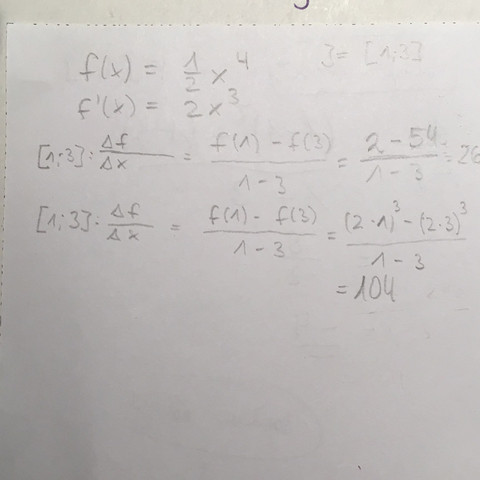 f(x) = 1/2 x^4
3= [1;3]
f'(x) = 2x^3
[1;3]: Δf/Δx = (f(1) - f(3))/(1-3) = (2-54)/(1-3) = 26
[1;3]: Δf/Δx = (f(1) - f(3))/(1-3) = ((2·1)^3 - (2·3)^3)/(1-3)
= 104